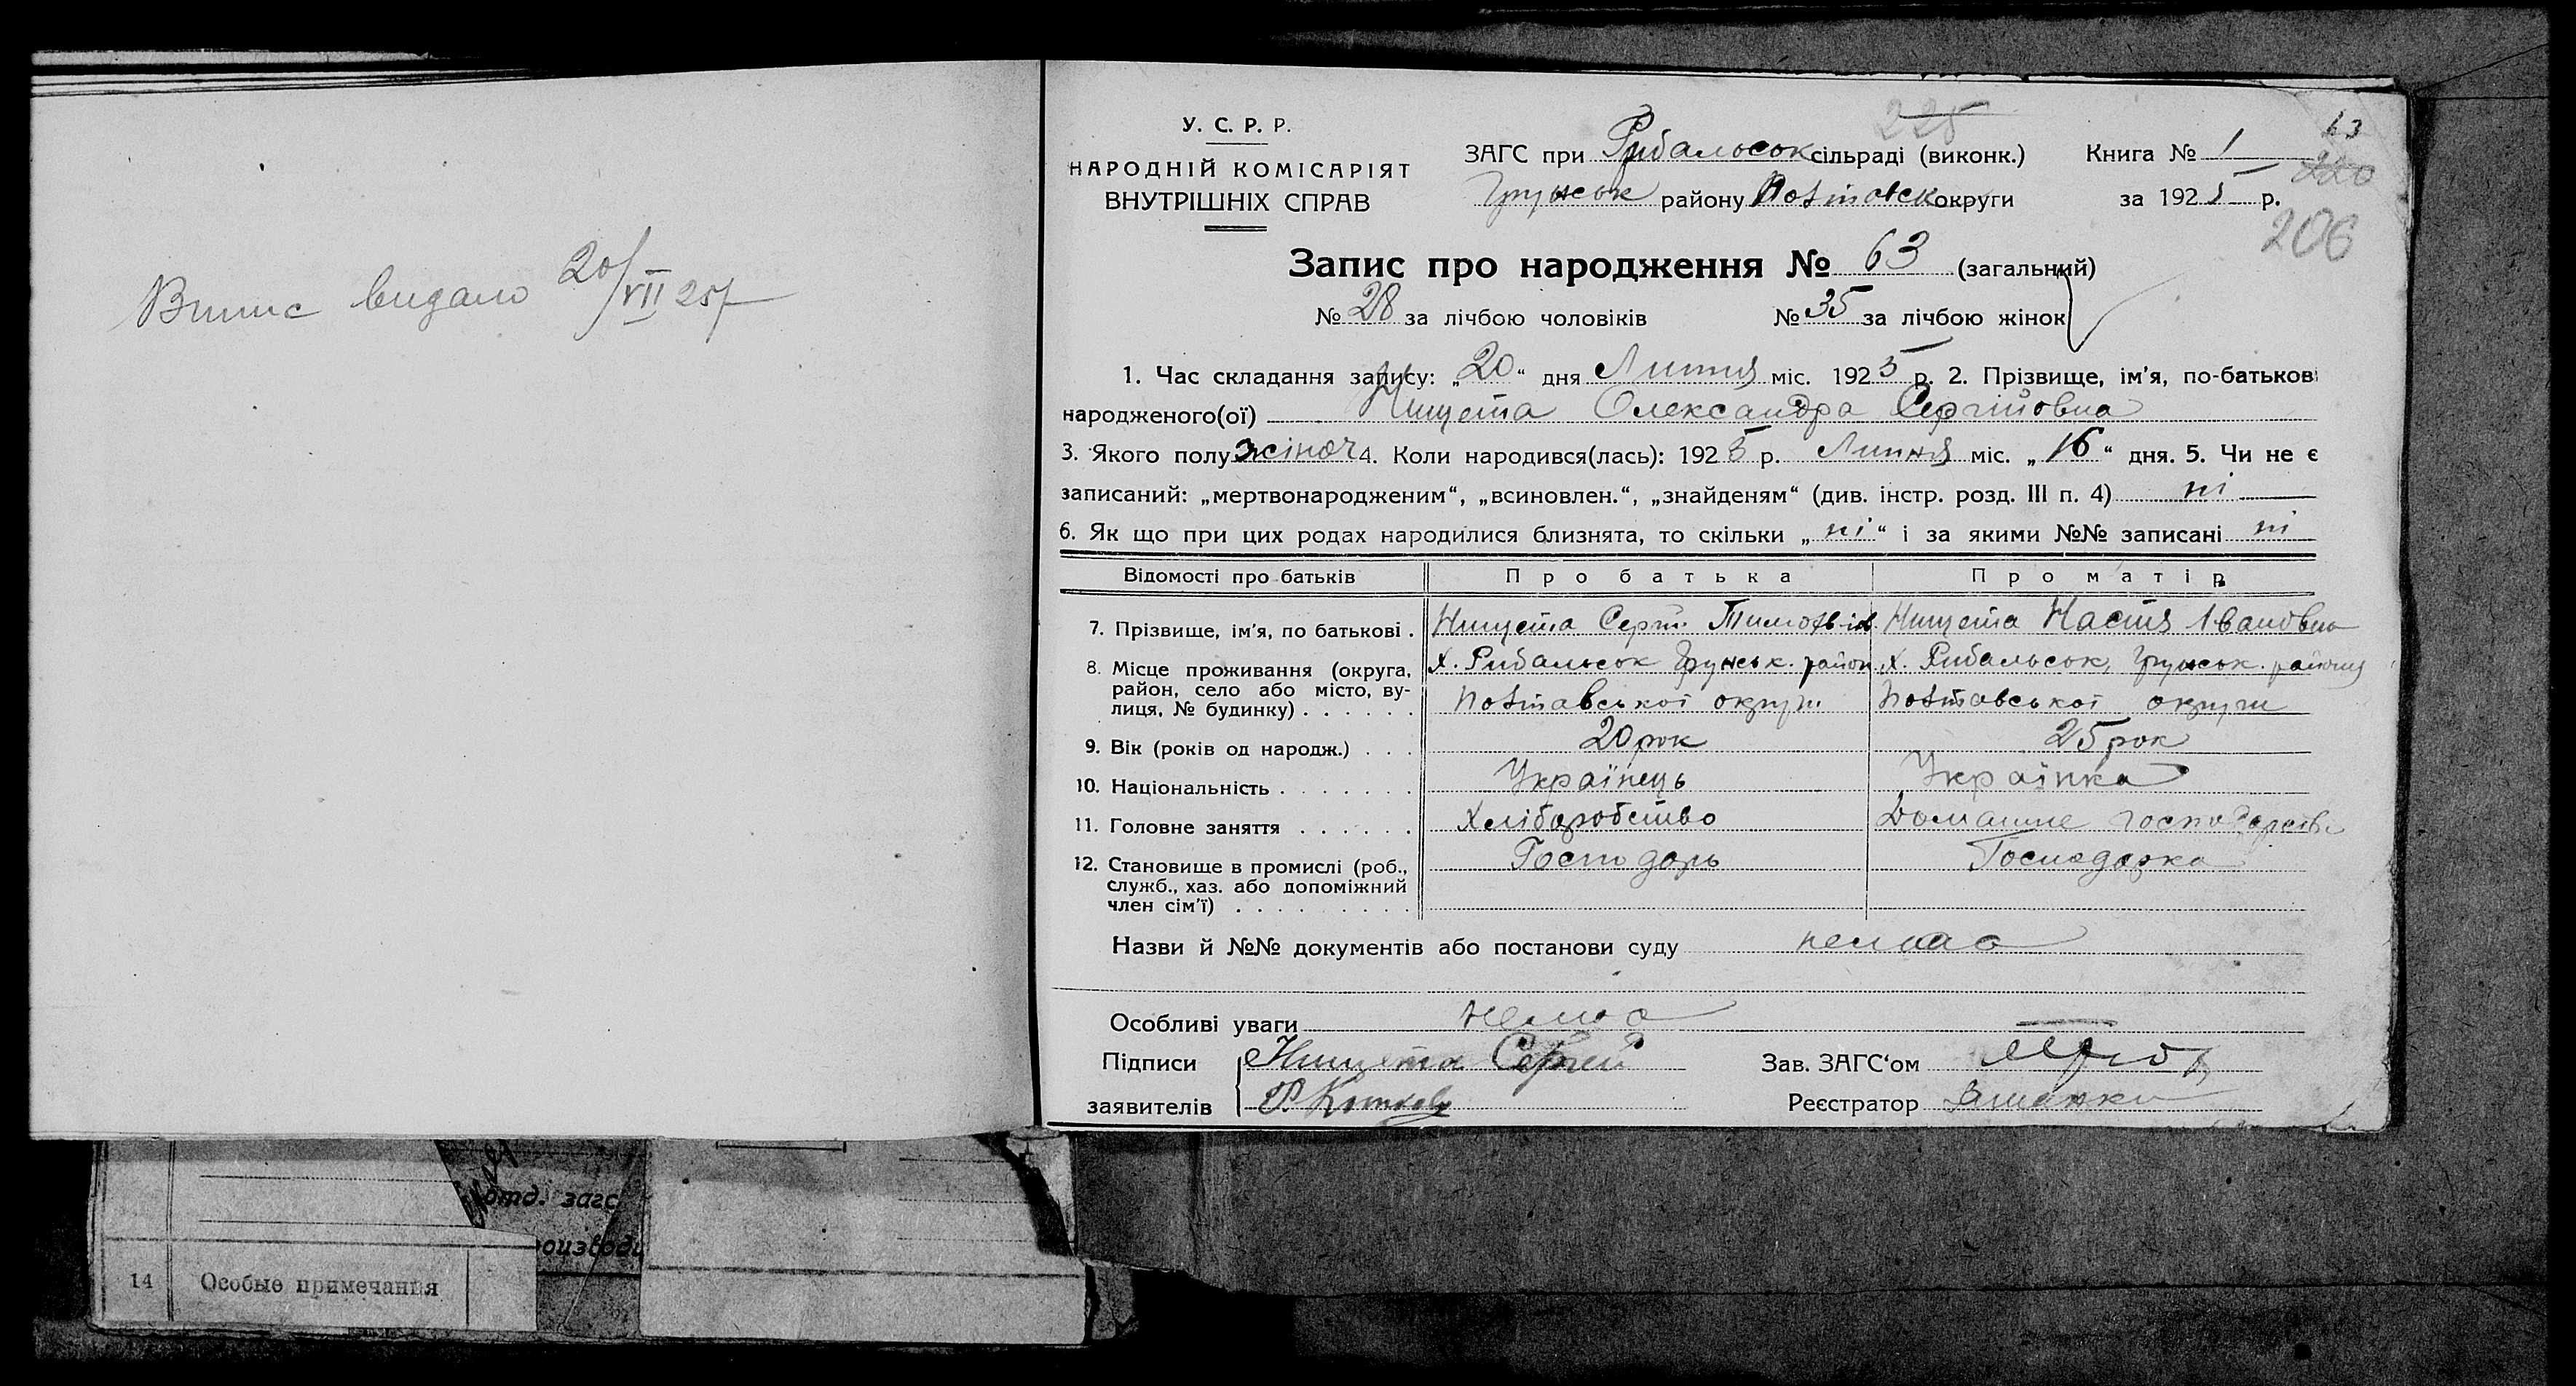 Випис видано 20/VII 25 р
225
У. С. Р. Р.
НАРОДНІЙ КОМІСАРІЯТ
ВНУТРІШНІХ СПРАВ
ЗАГС при Рибальськ сільраді (виконк.)
Грунськ району Полтавськ округи
Книга № 1
за 1925 р.
63
220
206
Запис про народження № 63 (загальний)
№ 28 за лічбою чоловіків № 35 за лічбою жінок
1. Час складання запису: „20“ дня Липня міс. 1925 р. 2. Прізвище, ім'я, по-батькові
народженого(ої) Нищета Олександра Сергійовна
3. Якого полу жіноч 4. Коли народився(лась): 1925 р. Липня міс. „16“ дня. 5. Чи не є
записаний: „мертвонародженим“, „всиновлен.“, „знайденям“ (див. інстр. розд. III п. 4) ні
6. Як що при цих родах народилися близнята, то скільки „ні“ і за якими №№ записані ні
Відомості про батьків Про батька Про матір
7. Прізвище, ім'я, по батькові . Нищета Сергій Тимофів Нищета Настя Івановна
8. Місце проживання (округа, х. Рибальськ Грунськ. район х. Рибальськ, Грунськ. району
район, село або місто, ву-
лиця, № будинку) . . . . . . Полтавської округи Полтавської округи
9. Вік (років од народж.) . . . 20 рок 25 рок
10. Національність . . . . . . . Українець Українка
11. Головне заняття . . . . . . Хліборобство Домашнє господарств
12. Становище в промислі (роб., Господарь Господарка
служб., хаз. або допоміжний
член сім'ї) . . . . . . . . .
Назви й №№ документів або постанови суду немає
Особливі уваги нема
Підписи Нищета Сергей
заявителів
Зав. ЗАГС‘ом
Реєстратор
отд. загс
14 Особые примечания